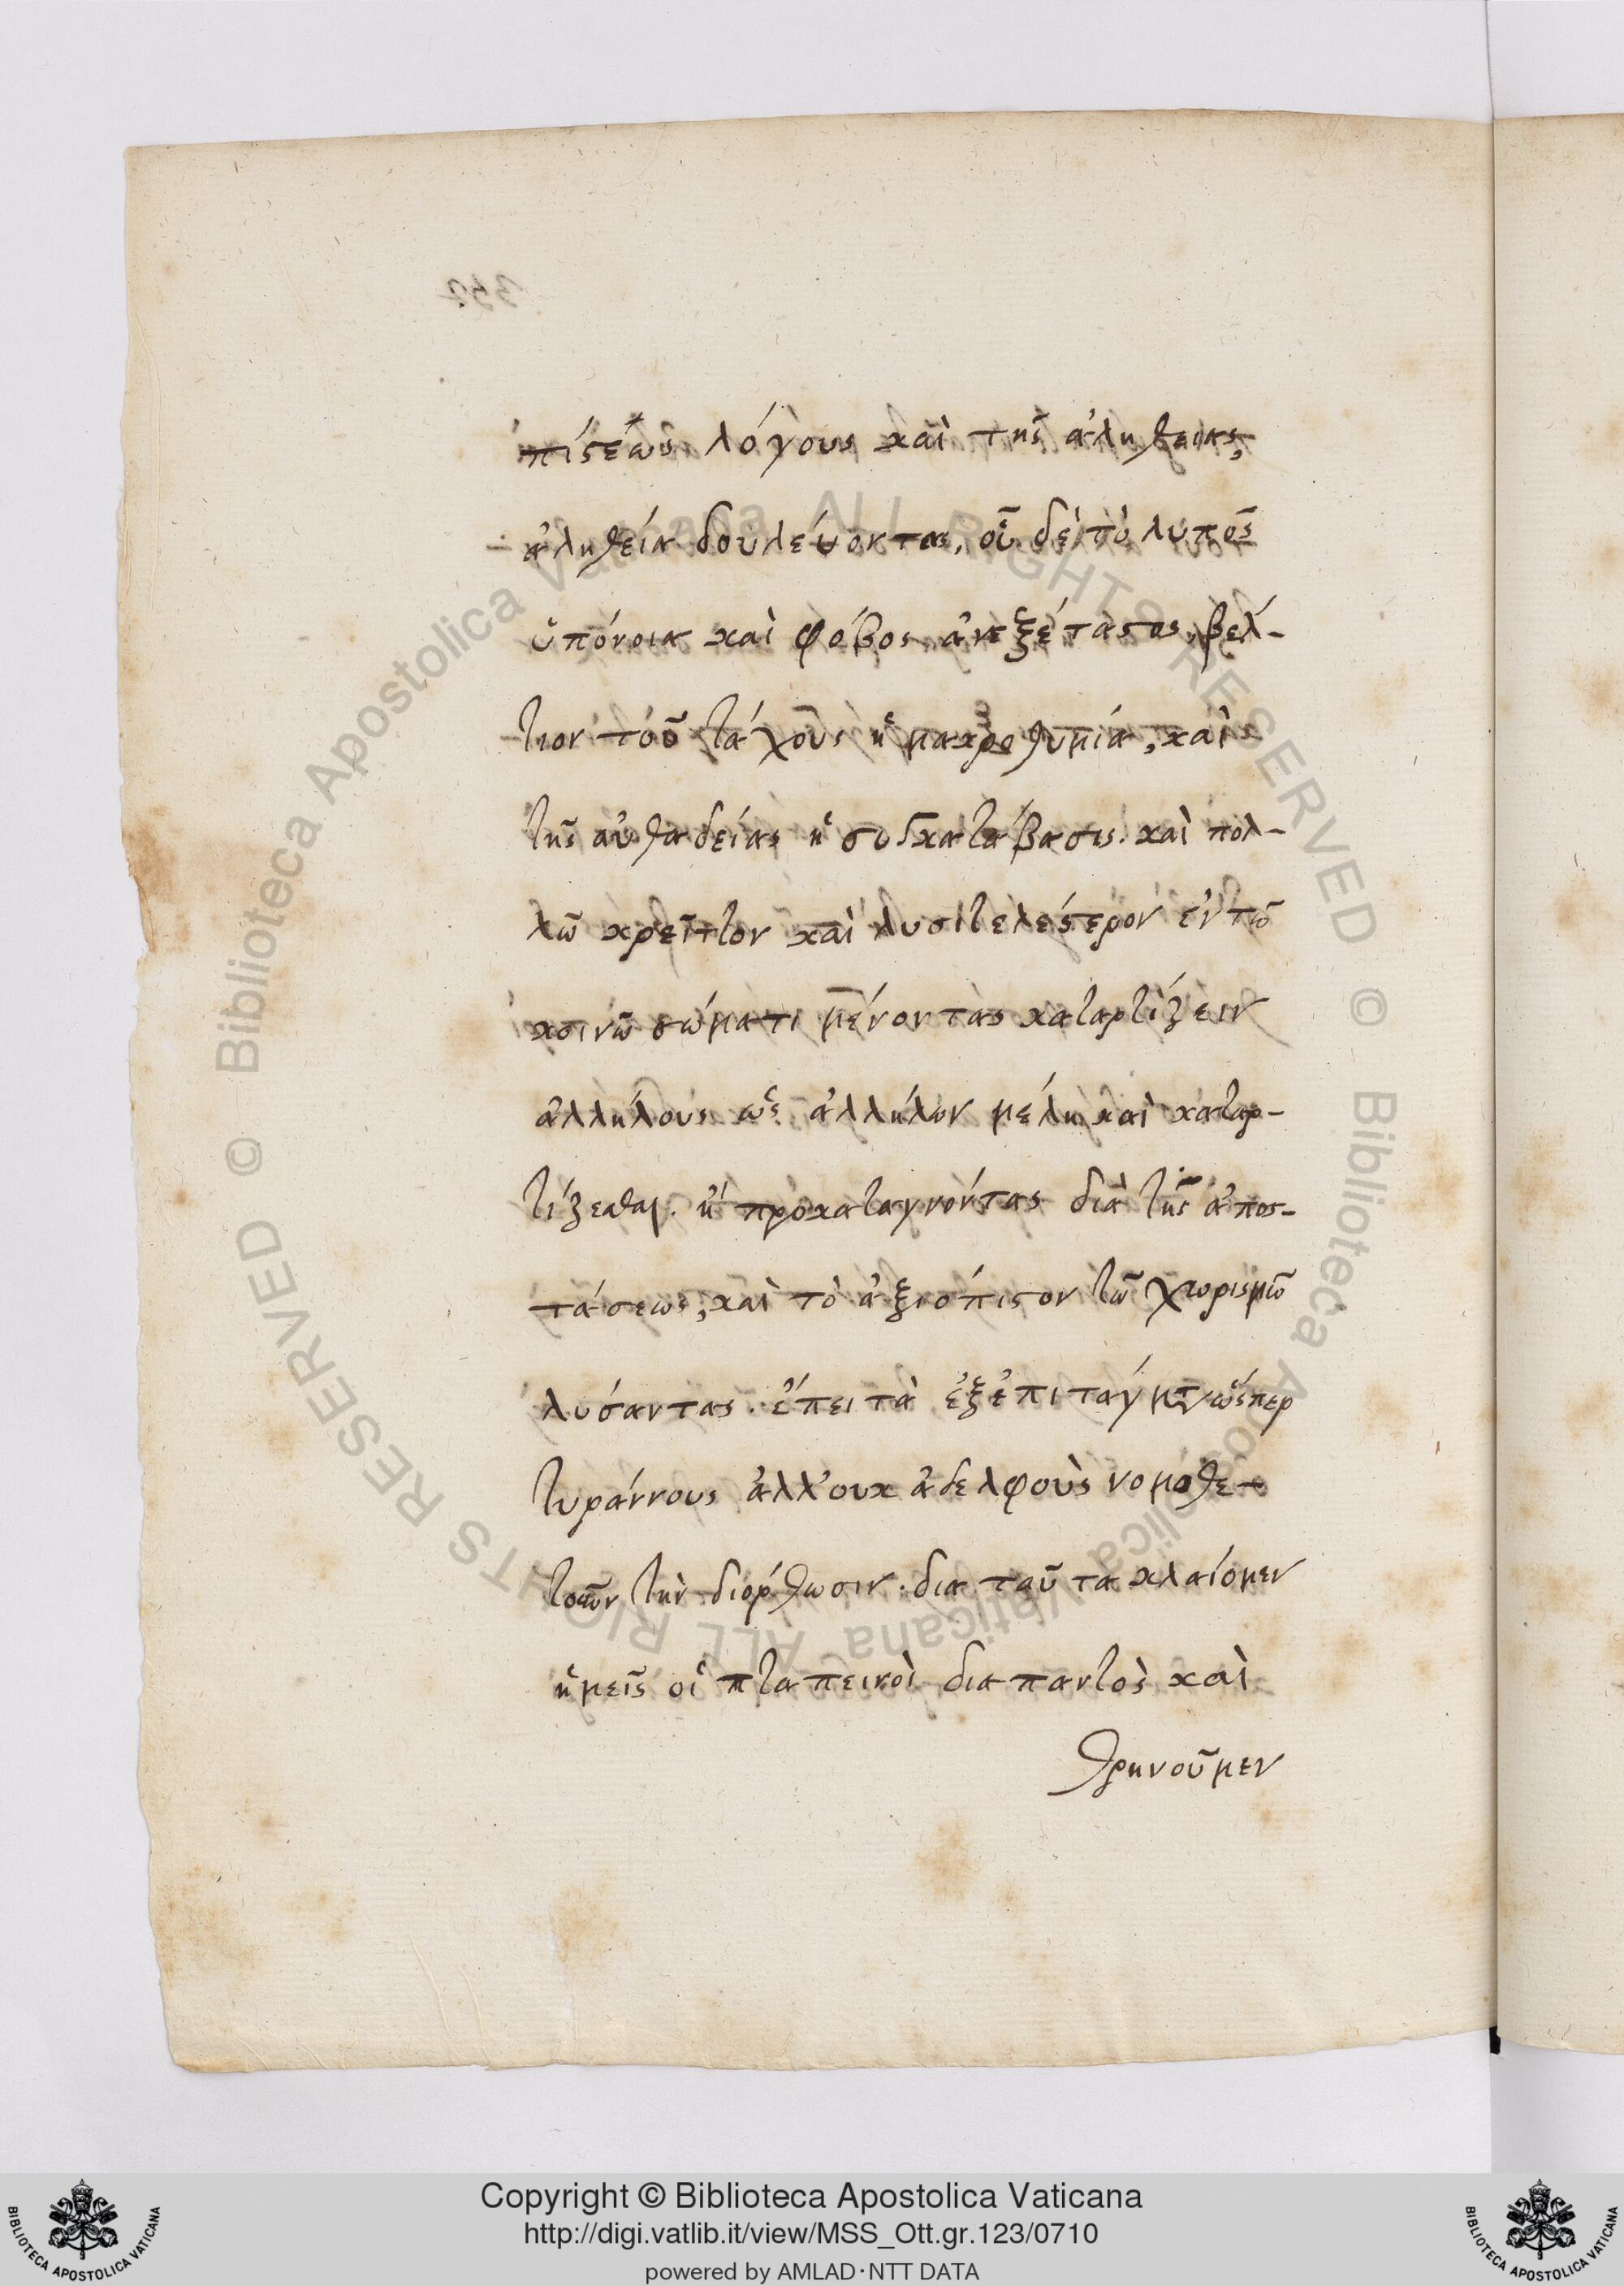 πίστεως λόγους καὶ τῆς ἀληθείας,
ἀληθεία δουλεύοντας, οὗ δὲ τὸ λυποῦν
ὑπόνοια καὶ φόβος ἀνεξέταστος, βέλ-
τιον τοῦ τάχους ἡ μακροθυμία, καὶ
τῆς αὐθαδείας ἡ συγκατάβασις. καὶ πολ-
λῶ κρεῖττον καὶ λυσιτελέστερον ἐν τῶ
κοινῶ σώματι μένοντας καταρτίζειν
ἀλλήλους ὡς ἀλλήλων μέλη καὶ καταρ-
τίζεσθαι. ἢ προκαταγνόντας διὰ τῆς ἀπος-
τάσεως, καὶ τὸ ἀξιόπιστον τῶ χωρισμῶ
λύσαντας. ἔπειτα ἐξ ἐπιτάγματος ὥσπερ
τυράννους ἀλλ' ουκ ἀδελφοὺς νομοθε-
τὴν διόρθωσιν. δια ταῦτα κλαίομεν
ἡμεῖς οἱ ταπεινοὶ διαπαντὸς καὶ
θρηνοῦμεν
Copyright © Biblioteca Apostolica Vaticana
http://digi.vatlib.it/view/MSS_Ott.gr.123/0710
powered by AMLAD·NTT DATA